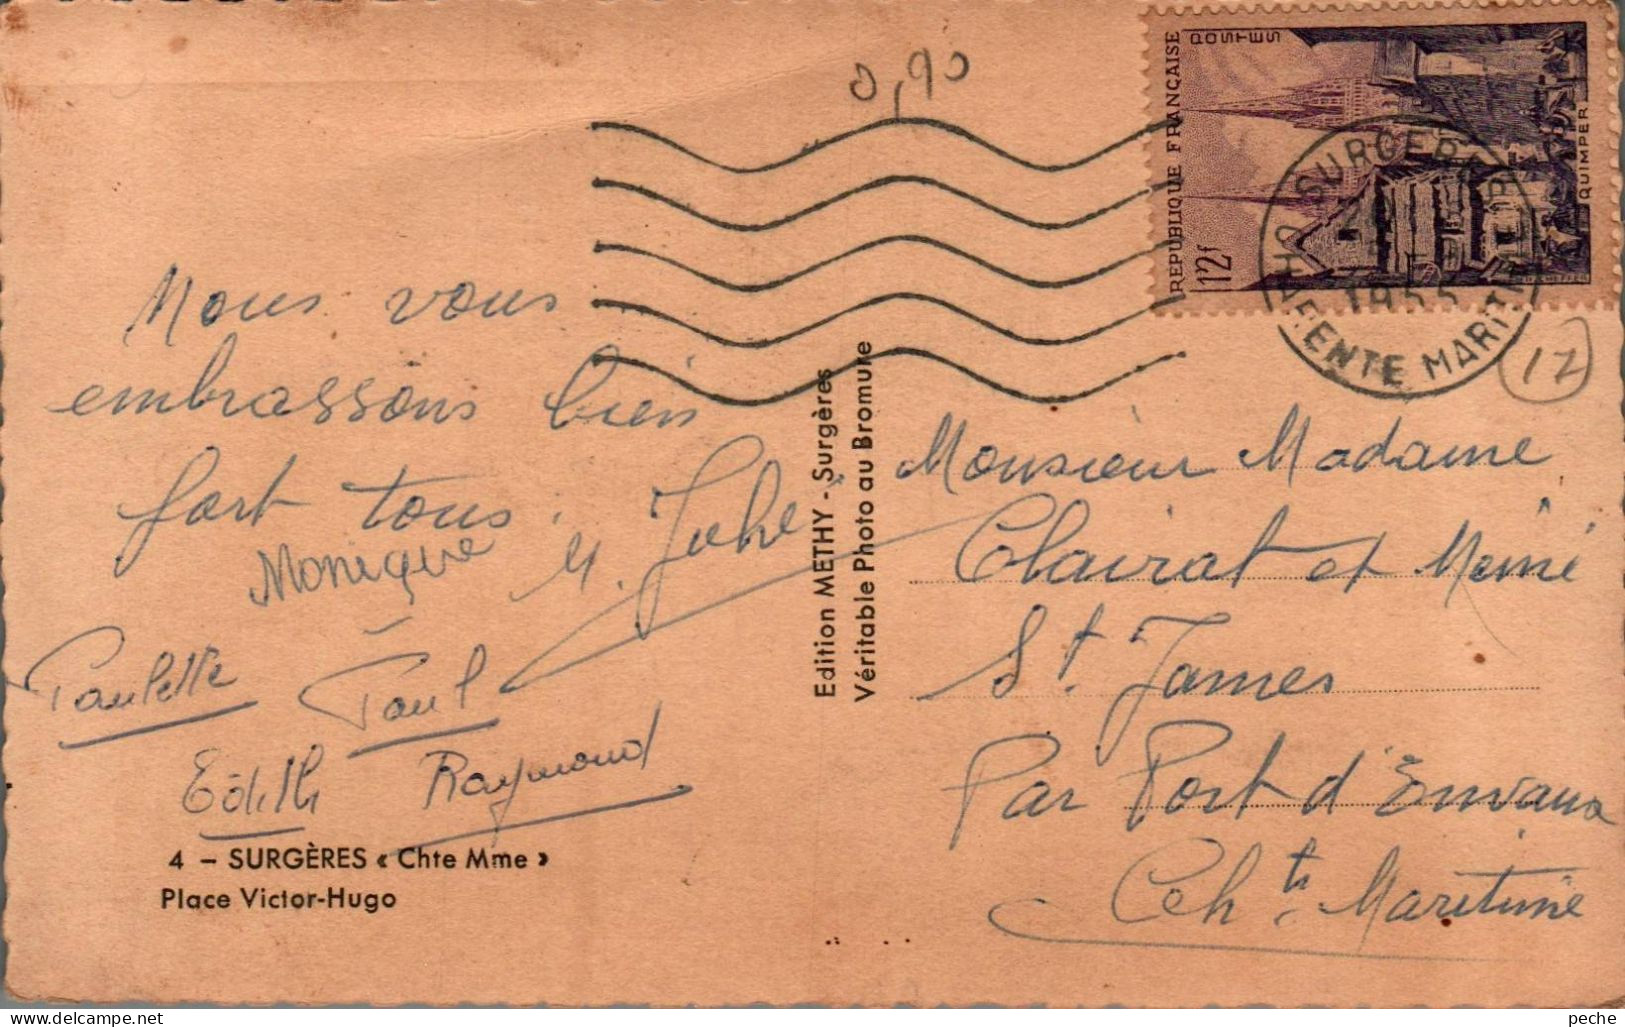 0,90
REPUBLIQUE FRANÇAISE
POSTES
12f
QUIMPER
SURGERES
CHARENTE MARITIME
1955
12
Nous vous
embrassons bien
fort tous.
Monique
Paulette Paul
Edith Raymond
4 – SURGÈRES « Chte Mme »
Place Victor-Hugo
Edition METHY - Surgères
Véritable Photo au Bromure
Monsieur Madame
Clairat et Mémé
St. James
Par Port d'Envaux
Ch te. Maritime
peche